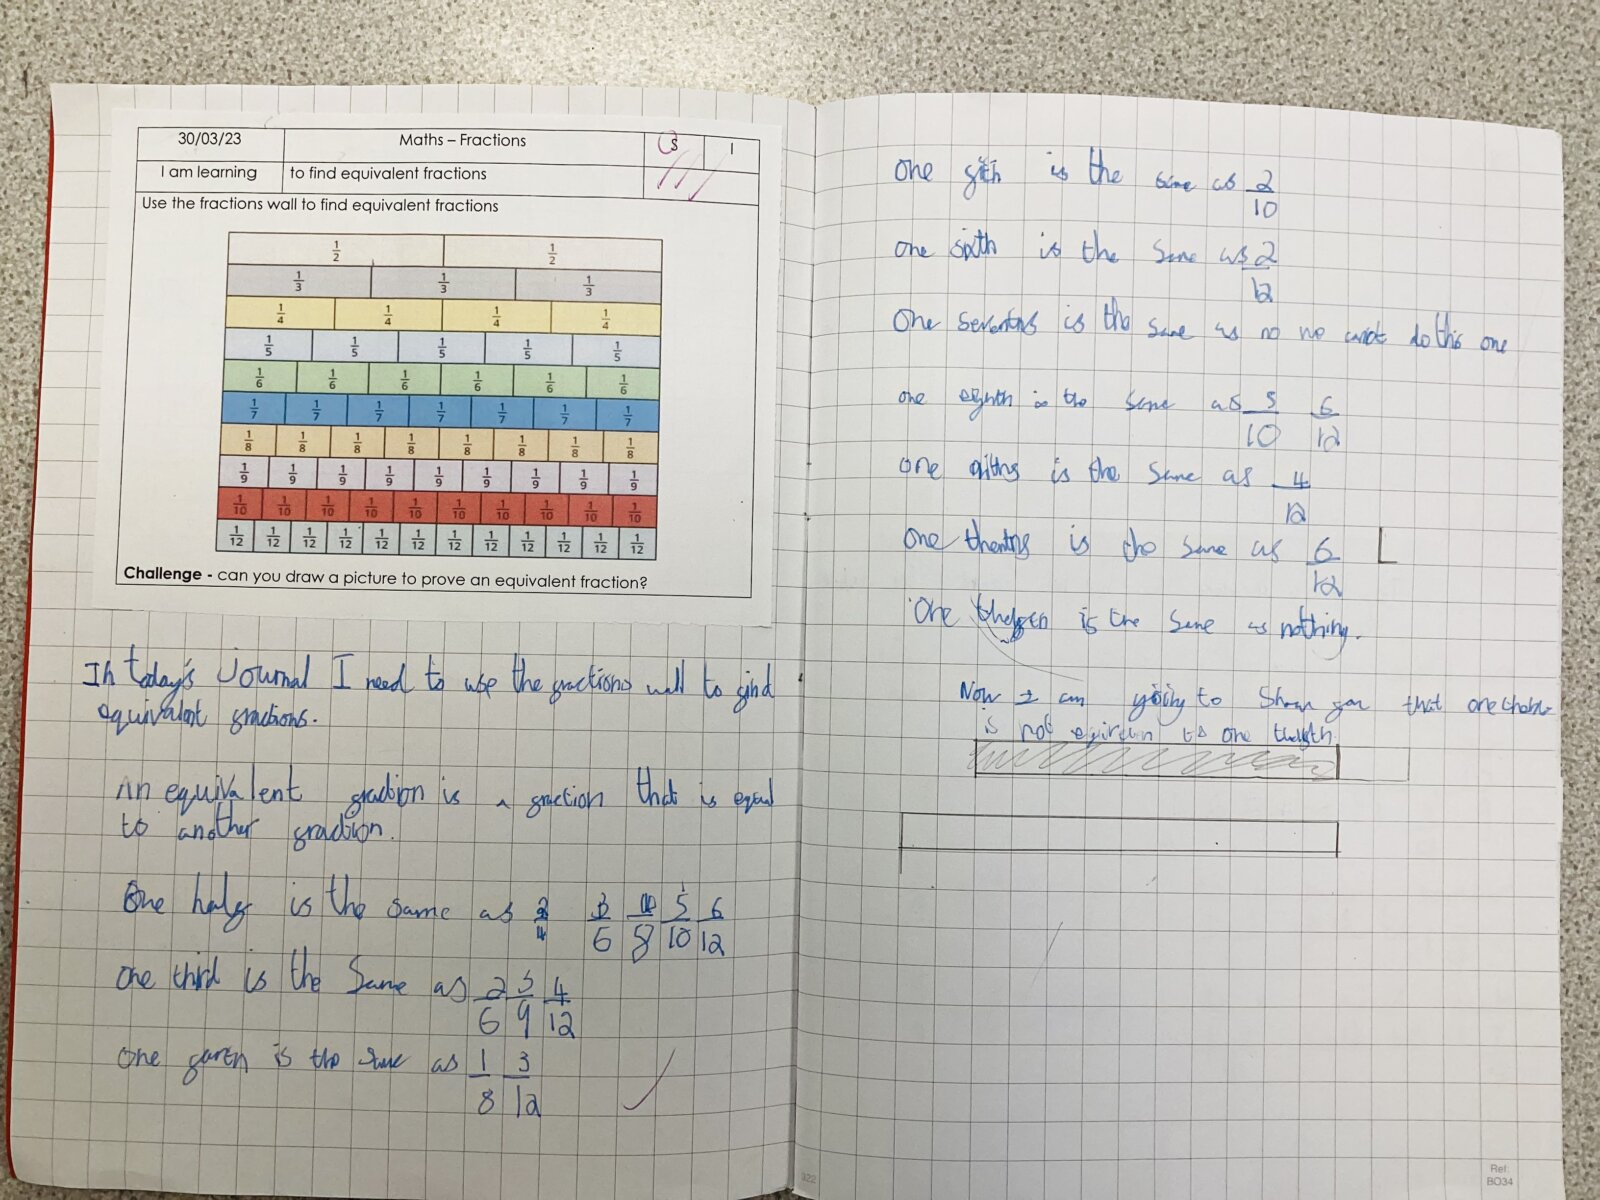 30/03/23 Maths – Fractions S I
I am learning to find equivalent fractions
Use the fractions wall to find equivalent fractions
1/2 1/2
1/3 1/3 1/3
1/4 1/4 1/4 1/4
1/5 1/5 1/5 1/5 1/5
1/6 1/6 1/6 1/6 1/6 1/6
1/7 1/7 1/7 1/7 1/7 1/7 1/7
1/8 1/8 1/8 1/8 1/8 1/8 1/8 1/8
1/9 1/9 1/9 1/9 1/9 1/9 1/9 1/9 1/9
1/10 1/10 1/10 1/10 1/10 1/10 1/10 1/10 1/10 1/10
1/12 1/12 1/12 1/12 1/12 1/12 1/12 1/12 1/12 1/12 1/12 1/12
Challenge - can you draw a picture to prove an equivalent fraction?
In today's Journal I need to use the fractions wall to find
equivalent fractions.
An equivalent fraction is a fraction that is equal
to another fraction.
One half is the same as 2/4 3/6 /8 5/10 6/12
One third is the same as 2/6 3/9 4/12
One is the same as 1/8 3/12
one is the same as 2/10
one sixth is the same as 2/12
One is the same as no no do this one
one is the same as 5/10 6/12
one is the same as 4/12
one is the same as 6/12
One is the same as nothing.
Now I am going to show you that one
is not to one
322
Ref:
BO34